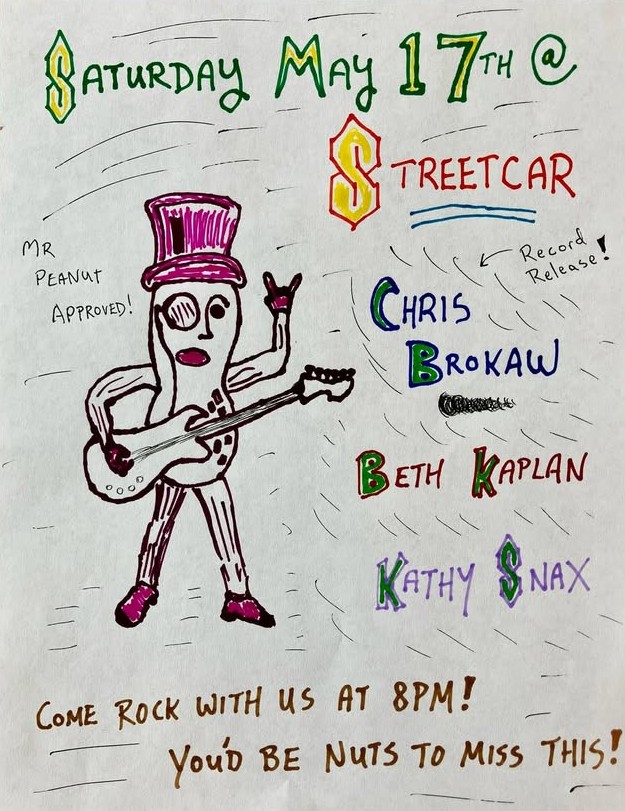 SATURDAY MAY 17TH @
STREETCAR
MR
PEANUT
APPROVED!
Record
Release!
CHRIS
BROKAW
BETH KAPLAN
KATHY SNAX
COME ROCK WITH US AT 8PM!
YOU'D BE NUTS TO MISS THIS!